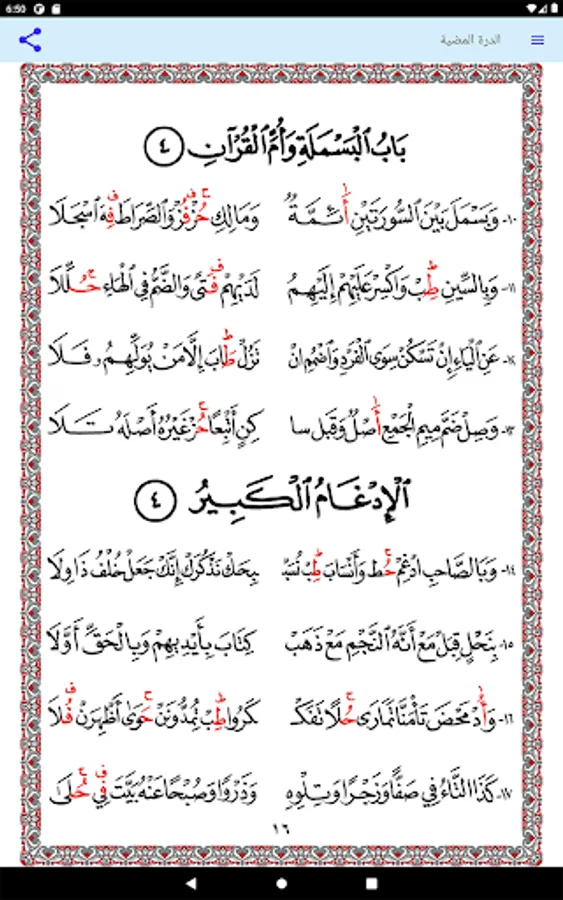 6:50
الدرة المضية
بَابُ الْبَسْمَلَةِ وَأُمِّ الْقُرْآنِ ٤
١٠- وَبَسْمَلَ بَيْنَ السُّورَتَيْنِ أَئِمَّةٌ وَمَالِكِ حُزْ فُزْ وَالصِّرَاطَ فِهَ اسْجَلَا
١١- وَبِالسِّينِ طِبْ وَاكْسِرْ عَلَيْهِمْ إِلَيْهِمُ لَدَيْهِمْ فَتًى وَالضَّمُّ فِي الْهَاءِ حُلِّلَا
١٢- عَنِ الْيَاءِ إِنْ تَسْكُنْ سِوَى الْفَرْدِ وَاضْمُمِ انْ تَزُلْ طَابَ إِلَّا مَنْ يُوَلِّهِمُ فَلَا
١٣- وَصِلْ ضَمَّ مِيمِ الْجَمْعِ أَصْلٌ وَقَبْلَ سَا كِنٍ أَتْبِعًا حُزْ غَيْرُهُ أَصْلَهُ تَلَا
الْإِدْغَامُ الْكَبِيرُ ٤
١٤- وَبَالصَّاحِبِ ادْغِمْ حُط وَأَنْسَابَ طِبْ نُسَبْ بِحَكْ نَذْكُرَكْ إِنَّكْ جَعَلْ خُلْفُ ذَا وِلَا
١٥- بِنَحْلٍ قِبَلْ مَعْ أَنَّهُ النَّجْمِ مَعْ ذَهَبْ كِتَابَ بِأَيْدِيهِمْ وَبِالْحَقِّ أَوَّلَا
١٦- وَأُدْ مَحْضَ تَأْمَنَّا تَمَارَى حُلًا تَفَكْـ كَرُوا طِبْ تُمِدُّونَنْ حَوَى أَظْهِرَنْ فُلَا
١٧- كَذَا التَّاءُ فِي صَفًّا وَزَجْرًا وَتِلْوِهِ وَذَرْوًا وَصُبْحًا عَنْهُ بَيَّتَ فِي حُلَى
١٦